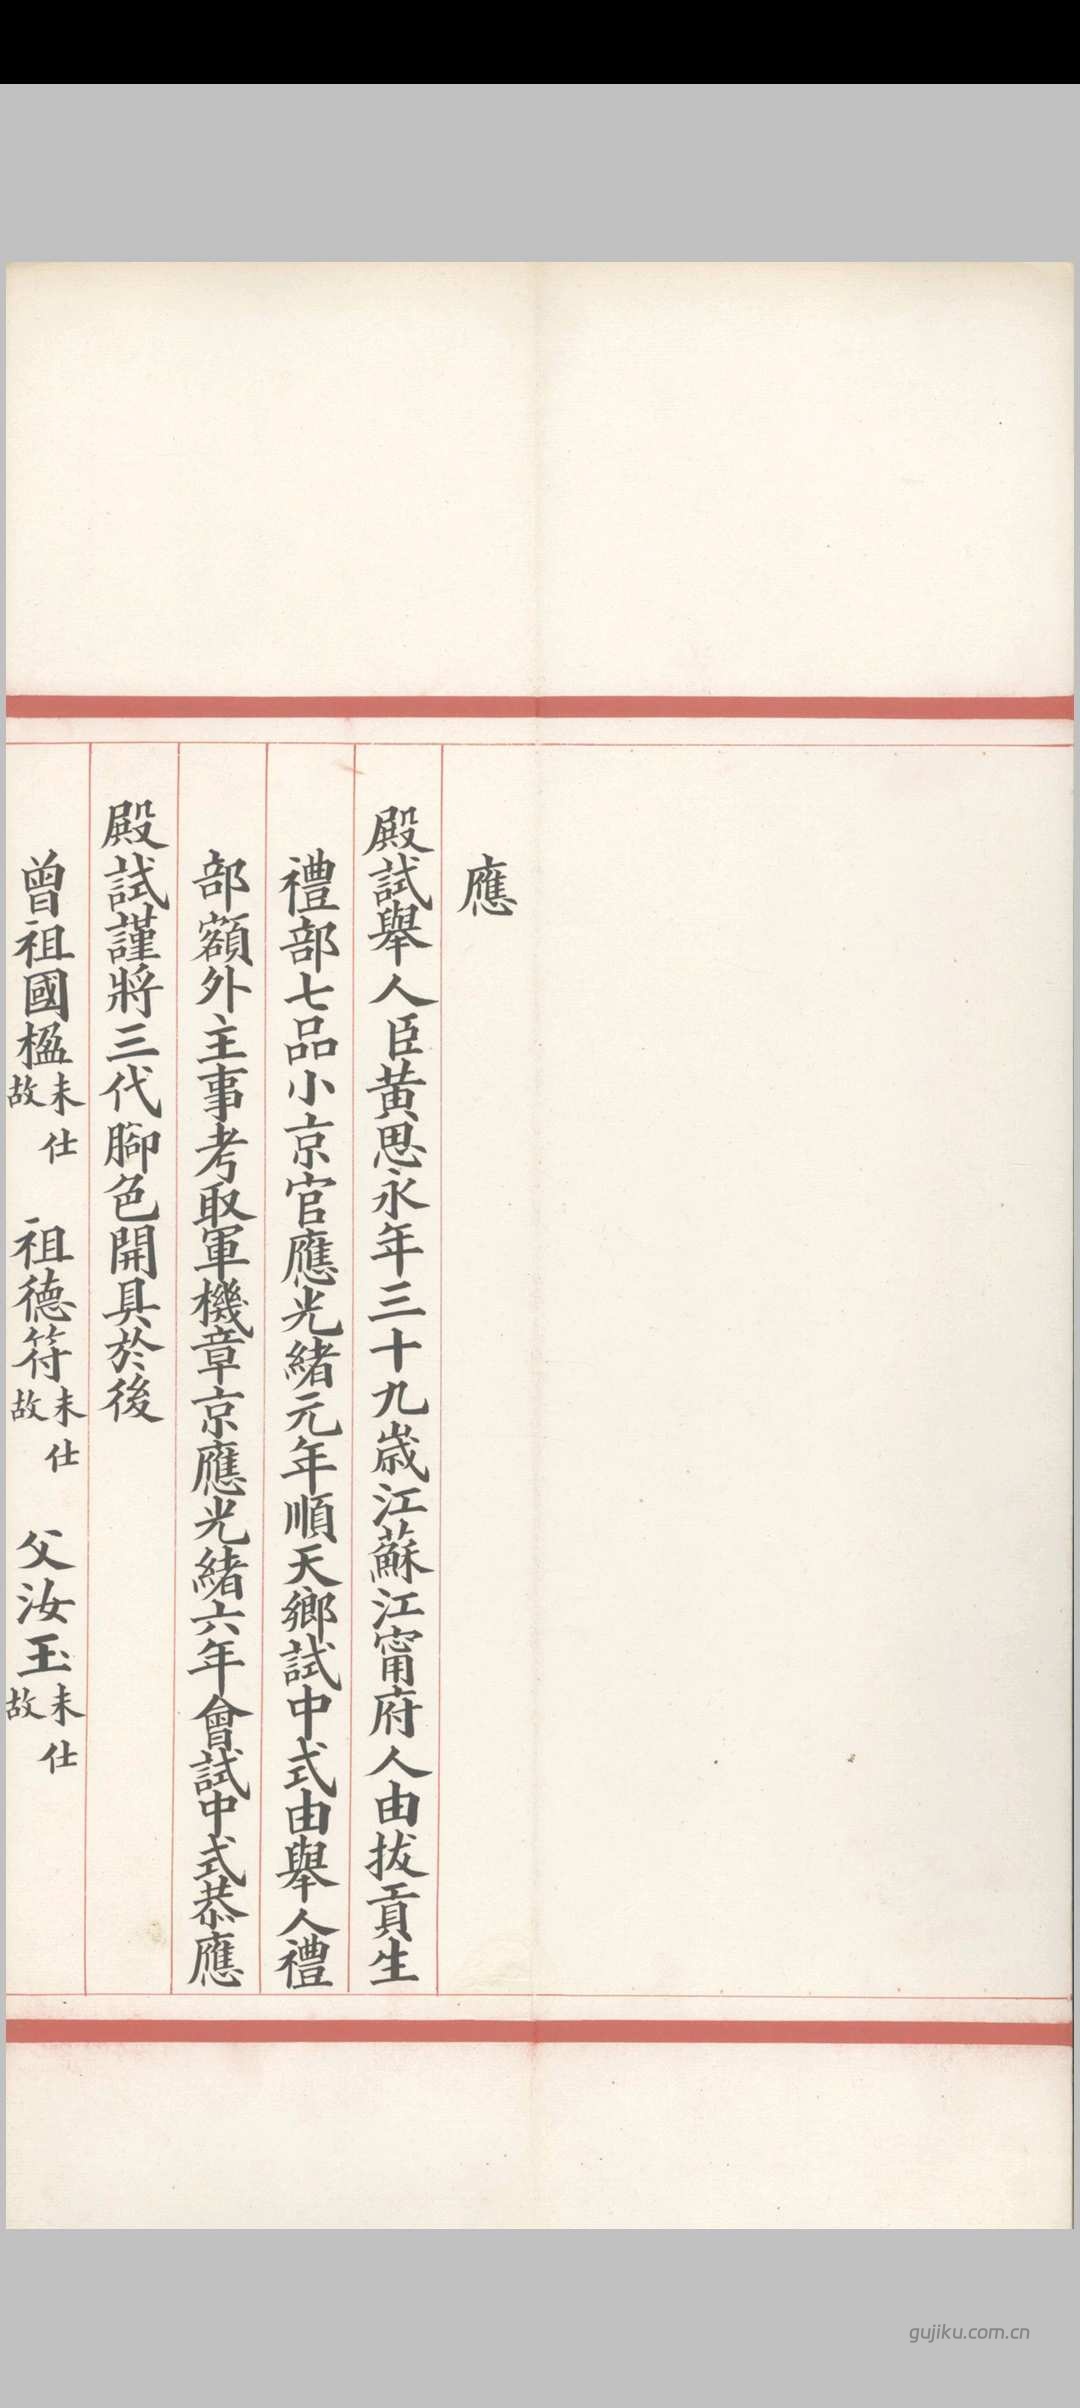 應
殿試舉人臣黃思永年三十九歲江蘇江甯府人由拔貢生
禮部七品小京官應光緒元年順天鄉試中式由舉人禮
部額外主事考取軍機章京應光緒六年會試中式恭應
殿試謹將三代腳色開具於後
曾祖國楹未仕故 祖德符未仕故 父汝玉未仕故
gujiku.com.cn